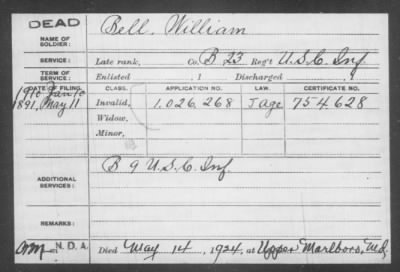 DEAD
NAME OF SOLDIER: Bell, William
SERVICE: Late rank, Co. B 23 Reg't U.S.C. Inf
TERM OF SERVICE: Enlisted , 1 Discharged , 1
DATE OF FILING. CLASS. APPLICATION NO. LAW. CERTIFICATE NO.
1910 Jan 10
1891, May 11 Invalid, 1,026,268 J age 754628
Widow,
Minor,
ADDITIONAL SERVICES: B 9 U.S.C. Inf.
REMARKS:
N. D. A. Died May 14, 1924, at Upper Marlboro, Md,